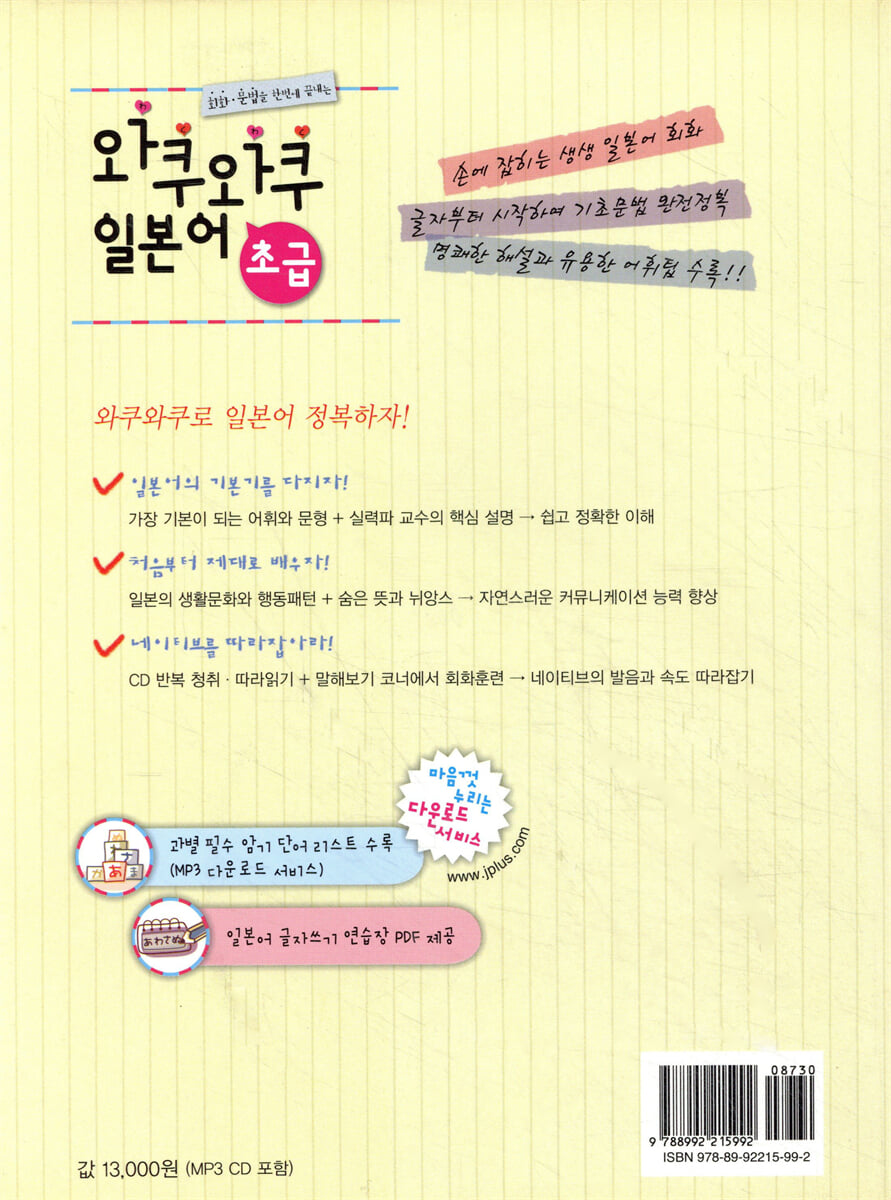 회화·문법을 한번에 끝내는
わ く わ く
와쿠와쿠
일본어 초급
손에 잡히는 생생 일본어 회화
글자부터 시작하여 기초문법 완전정복
명쾌한 해설과 유용한 어휘팁 수록!!
와쿠와쿠로 일본어 정복하자!
일본어의 기본기를 다지자!
가장 기본이 되는 어휘와 문형 + 실력파 교수의 핵심 설명 → 쉽고 정확한 이해
처음부터 제대로 배우자!
일본의 생활문화와 행동패턴 + 숨은 뜻과 뉘앙스 → 자연스러운 커뮤니케이션 능력 향상
네이티브를 따라잡아라!
CD 반복 청취 · 따라읽기 + 말해보기 코너에서 회화훈련 → 네이티브의 발음과 속도 따라잡기
마음껏
누리는
다운로드
서비스
www.jplus.com
わ さ
か あ ま
과별 필수 암기 단어 리스트 수록
(MP3 다운로드 서비스)
あわさぬ
일본어 글자쓰기 연습장 PDF 제공
08730
9 788992 215992
ISBN 978-89-92215-99-2
값 13,000원 (MP3 CD 포함)